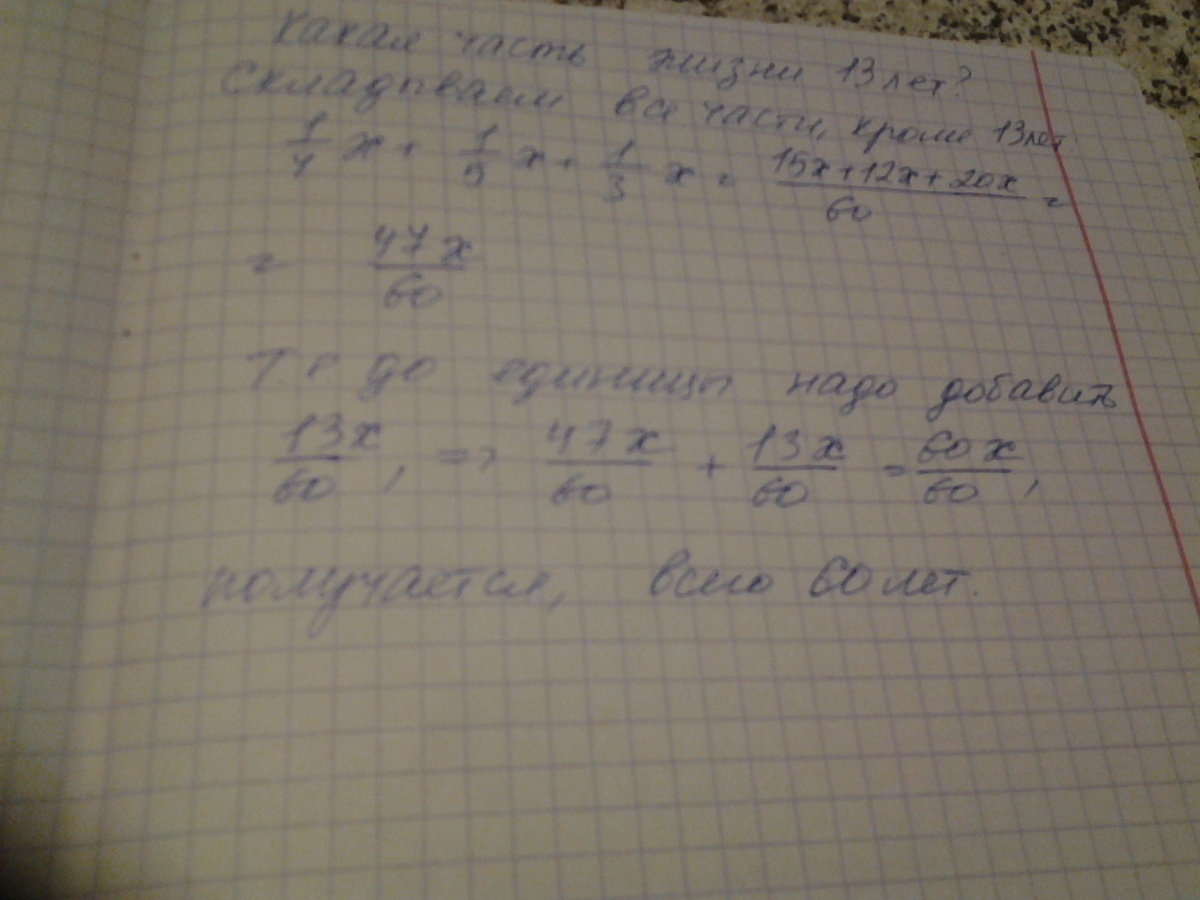 Какая часть жизни 13 лет?
Складываем все части, кроме 13 лет.
1/4 x + 1/5 x + 1/3 x = (15x+12x+20x)/60 =
= 47x/60
Т е до единицы надо добавить
13x/60, => 47x/60 + 13x/60 = 60x/60,
получается, всего 60 лет.